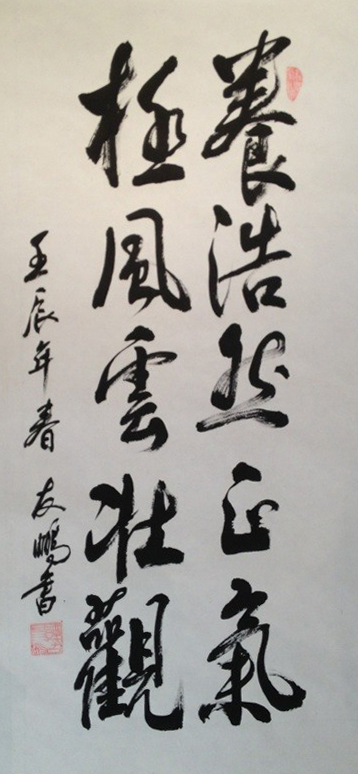 養浩然正氣
極風雲壯觀
壬辰年春 友鵬書